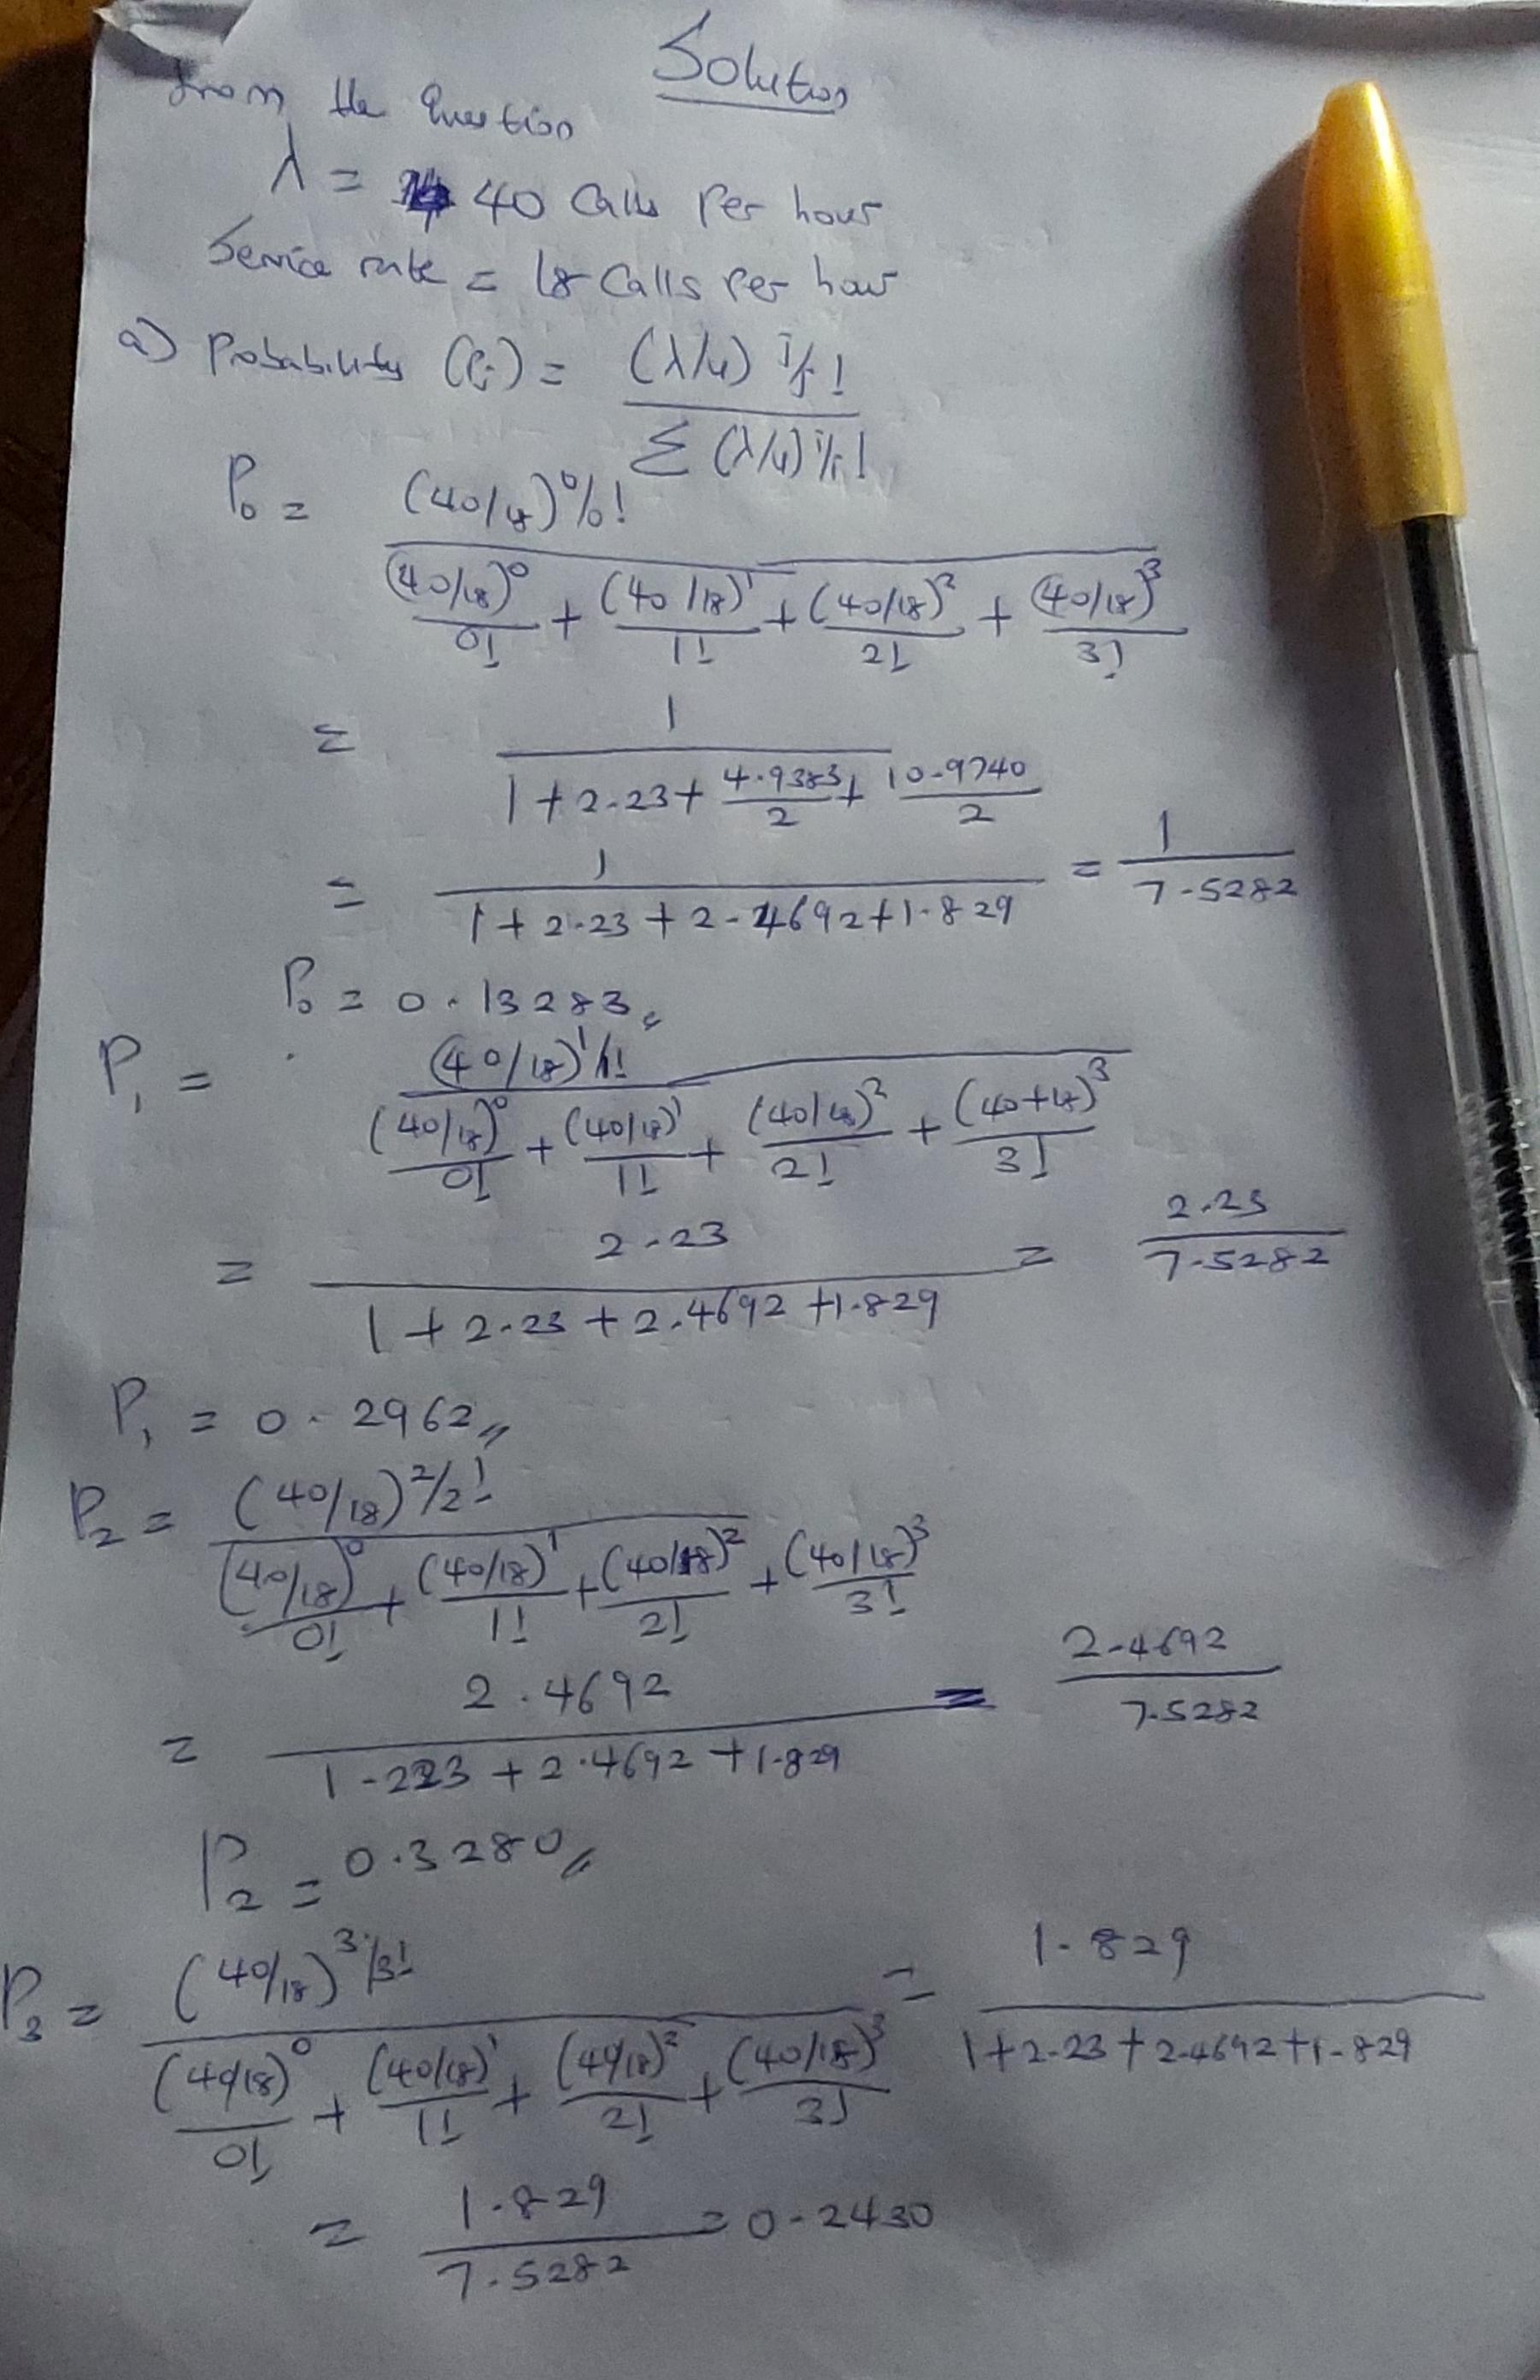 Solution
from the Question
λ = 40 Calls Per hour
Service rate = 18 Calls Per hour
a) Probability (Pi) = (λ/μ)^i/i! / Σ(λ/μ)^i/i!
P₀ = (40/18)⁰/0! / (40/18)⁰/0! + (40/18)¹/1! + (40/18)²/2! + (40/18)³/3!
= 1 / 1 + 2.23 + 4.9383/2 + 10.9740/2
= 1 / 1 + 2.23 + 2.4692 + 1.829 = 1 / 7.5282
P₀ = 0.13283
P₁ = (40/18)¹/1! / (40/18)⁰/0! + (40/18)¹/1! + (40/18)²/2! + (40+18)³/3!
= 2.23 / 1 + 2.23 + 2.4692 + 1.829 = 2.23 / 7.5282
P₁ = 0.2962
P₂ = (40/18)²/2! / (40/18)⁰/0! + (40/18)¹/1! + (40/18)²/2! + (40/18)³/3!
= 2.4692 / 1-223 + 2.4692 + 1.829 = 2.4692 / 7.5282
P₂ = 0.3280
P₃ = (40/18)³/3! / (40/18)⁰/0! + (40/18)¹/1! + (40/18)²/2! + (40/18)³/3! = 1.829 / 1+2.23+2.4692+1.829
= 1.829 / 7.5282 = 0.2430